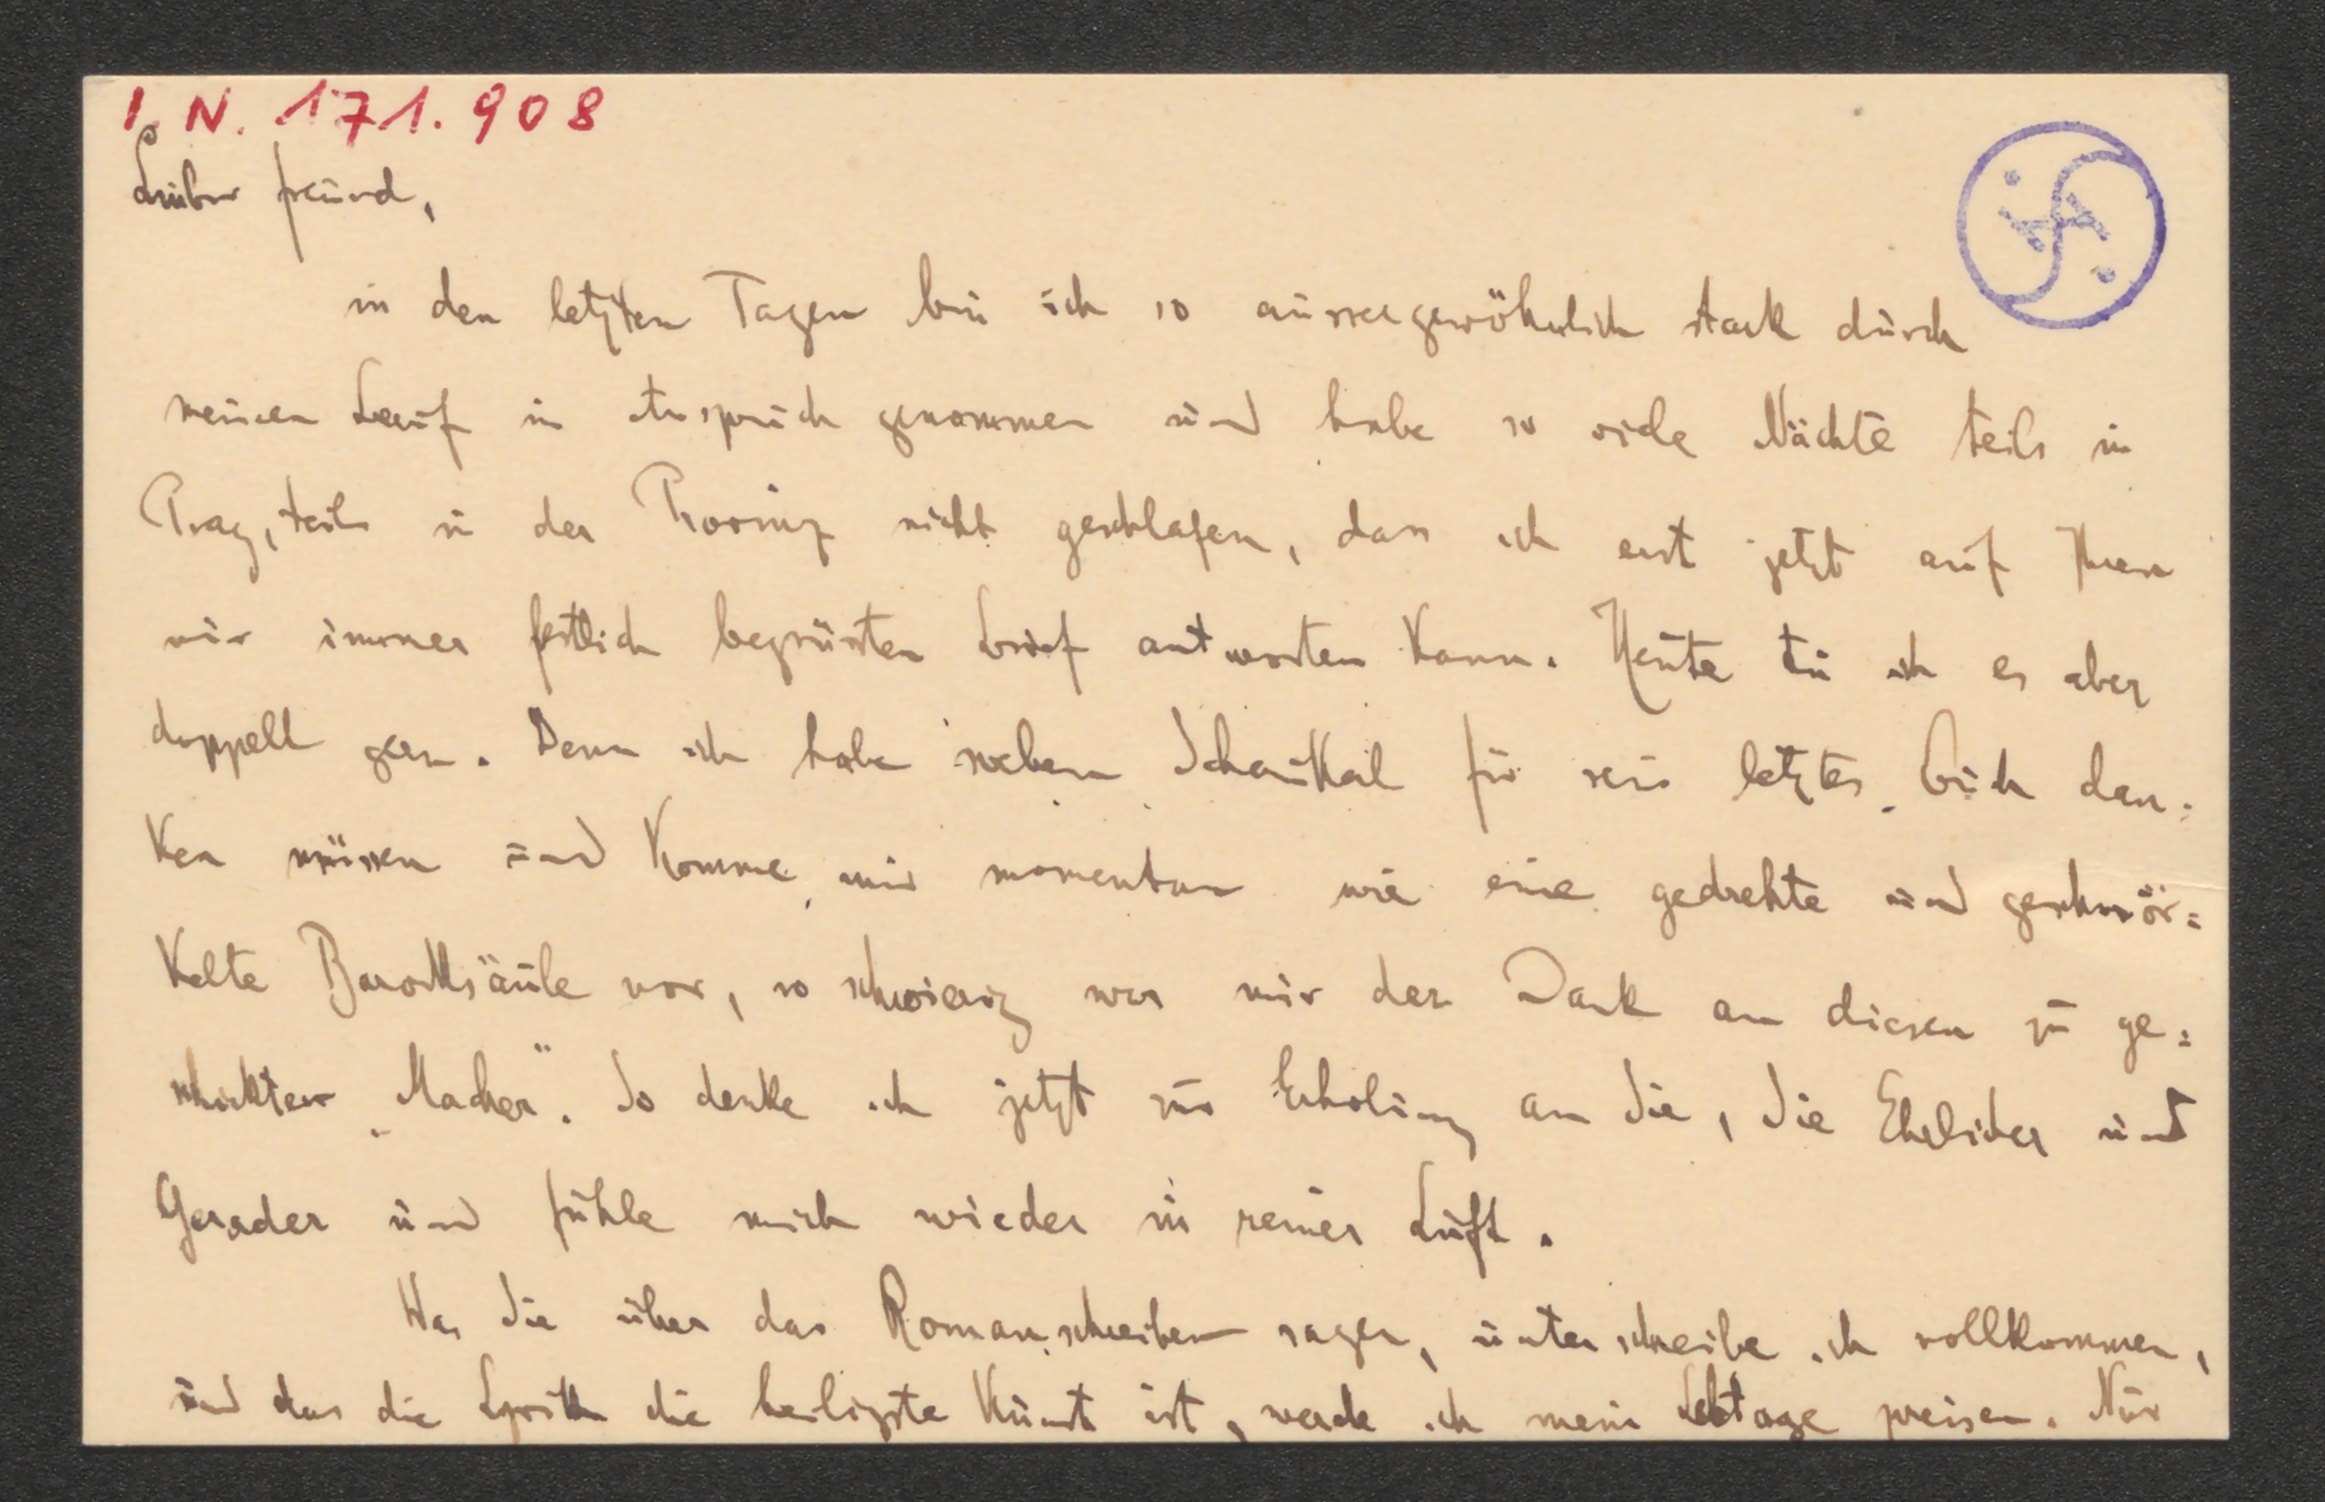 I. N. 171.908
Lieber Freund,
in den letzten Tagen bin ich so aussergewöhnlich stark durch
meinen Beruf in Anspruch genommen und habe so viele Nächte teils in
Prag, teils in der Provinz nicht geschlafen, dass ich erst jetzt auf Ihren
mir immer festlich begrüssten Brief antworten kann. Heute tu ich es aber
doppelt gern. Denn ich habe soeben Schaukal für sein letztes Buch dan=
ken müssen und komme mir momentan wie eine gedrehte und geschnör=
kelte Barocksäule vor, so schwierig war mir der Dank an diesen zu ge=
schickten „Macher". So denke ich jetzt zur Erholung an Sie, Sie Ehrlicher und
Gerader und fühle mich wieder in reiner Luft.
Was Sie über das Romanschreiben sagen, unterschreibe ich vollkommen,
und dass die Lyrik die heiligste Kunst ist, werde ich mein Lebtage preisen. Nur